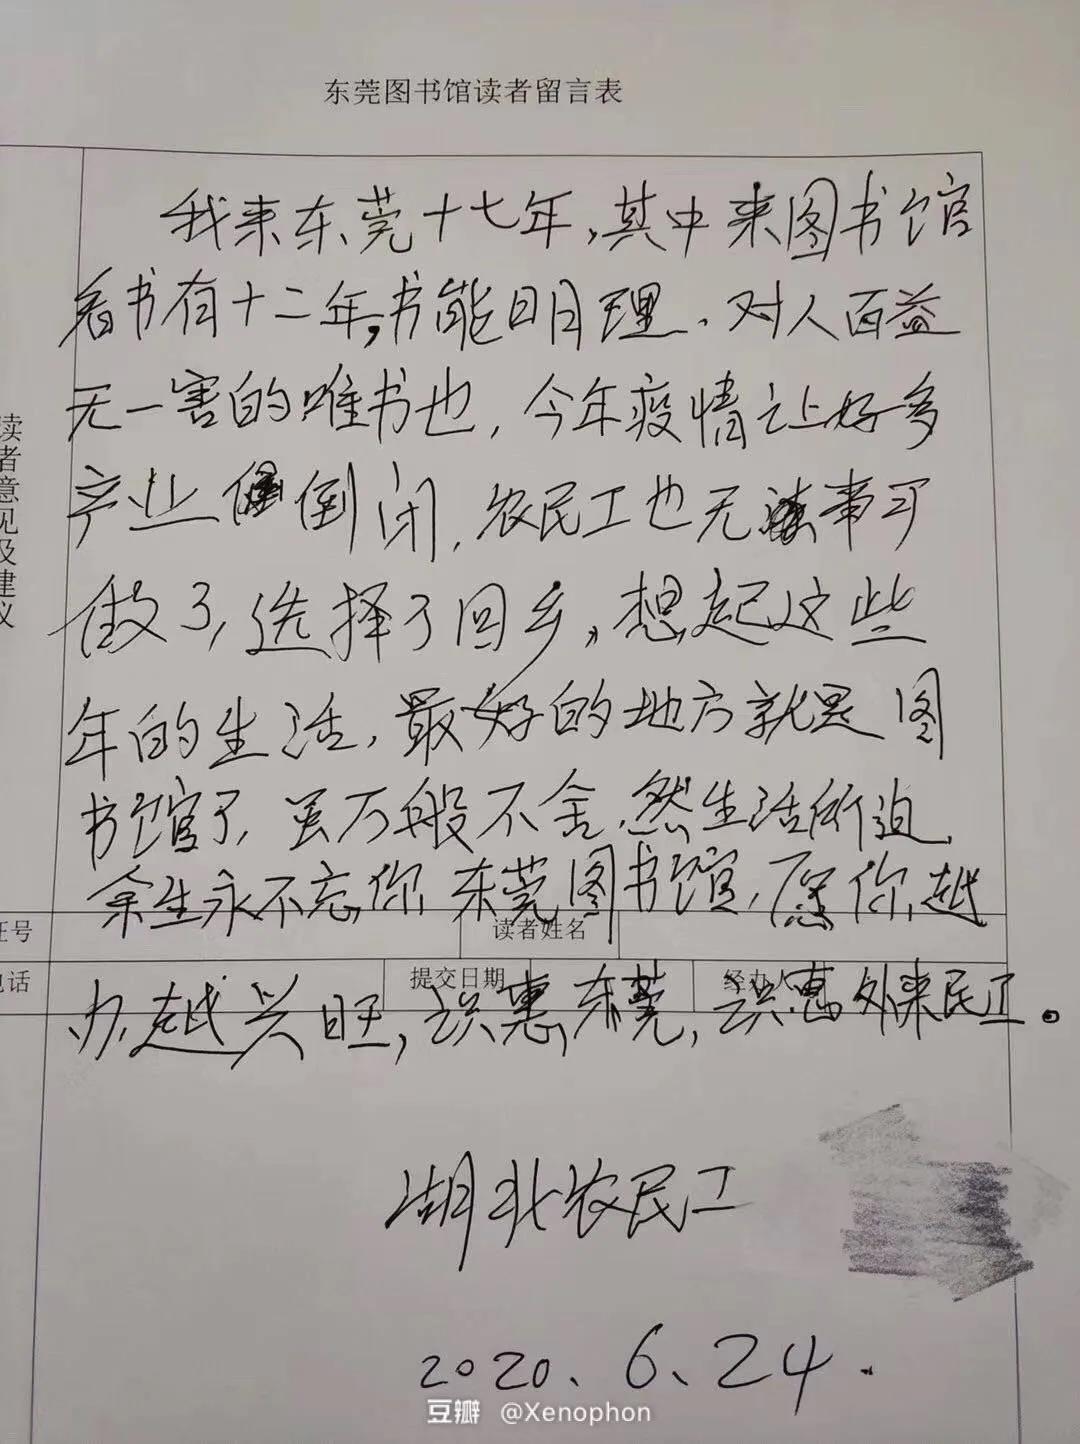 东莞图书馆读者留言表
我来东莞十七年，其中来图书馆
看书有十二年，书能明理、对人百益
无一害的唯书也，今年疫情让好多
产业倒闭，农民工也无事可
做了，选择了回乡，想起这些
年的生活，最好的地方就是图
书馆了，虽万般不舍，然生活所迫，
余生永不忘你，东莞图书馆，愿你越
办越兴旺，识惠东莞，识惠外来民工。
读者意见及建议
证号
读者姓名
电话
提交日期
经办人
湖北农民工
2020、6、24.
豆瓣 @Xenophon